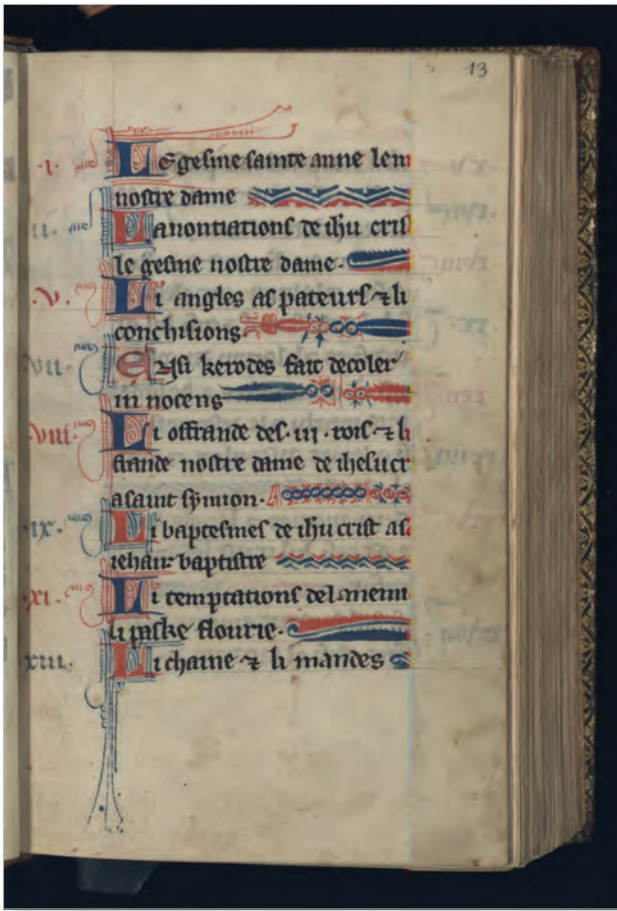 13
.I. Le gesine sainte anne lem
nostre dame
II. Lanontiations de ihu crist
le gesine nostre dame.
.V. Li angles as pateurs ⁊ li
conchisions.
VII. Ensi herodes fait decoler
innocens
VIII. Li offrande des .iii. rois ⁊ li
frande nostre dame de ihesu cr
a saint symion.
IX. Li baptesmes de ihu crist as
iehan baptistre
XI. Li temptations del anemi
li paske flourie.
XIII. Li chaine ⁊ li mandes